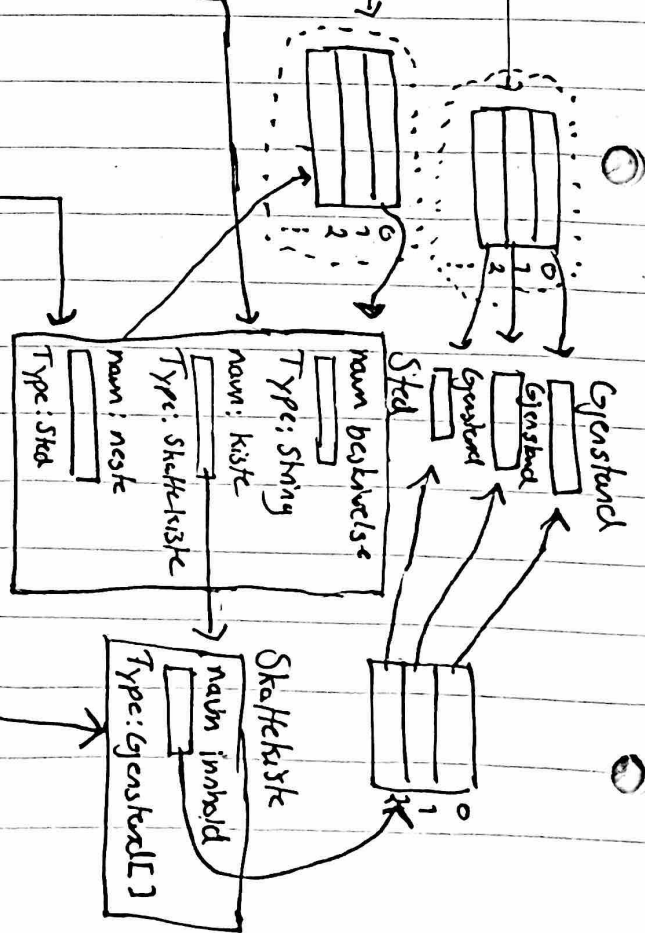 0
1
2
0
1
2
Gjenstand
Gjenstand
Gjenstand
Sted
navn beskrivelse
Type: String
navn: kiste
Type: Skattekiste
navn: neste
Type: Sted
0
1
2
Skattekiste
navn innhold
Type: Gjenstand[]